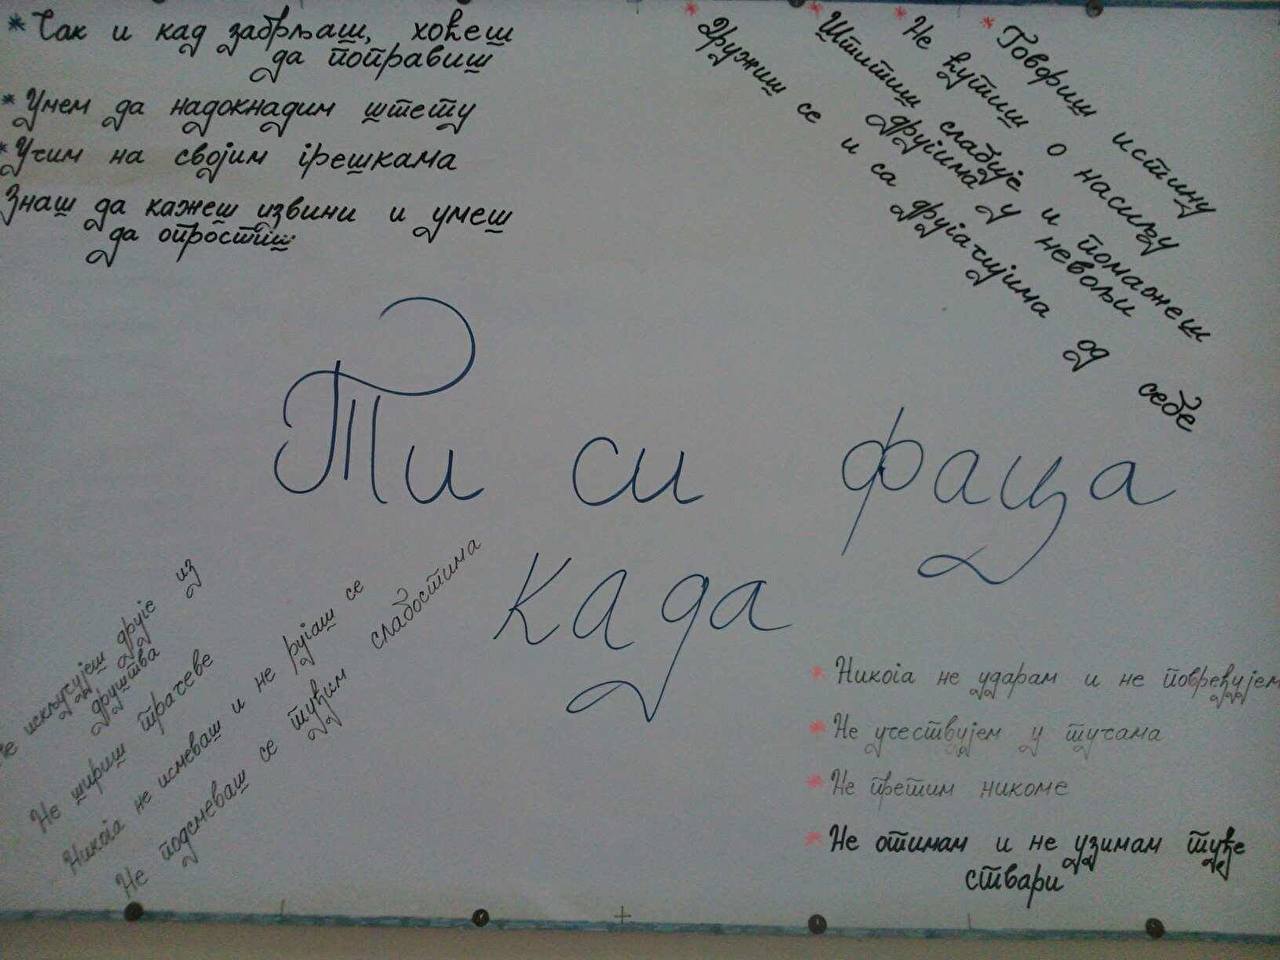 * Чак и кад забрљаш, хоћеш
да поправиш
* Умем да надокнадим штету
* Учим на својим грешкама
Знаш да кажеш извини и умеш
да опростиш
* Говориш истину
* Не ћутиш о насиљу
* Штитиш слабије и помажеш
другима у невољи
* Дружиш се и са другачијима од себе
Ти си фаца
када
Не искључујеш друге из
друштва
Не шириш трачеве
Никога не исмеваш и не ругаш се
Не подсмеваш се туђим слабостима
* Никога не ударам и не повређујем
* Не учествујем у тучама
* Не претим никоме
* Не отимам и не узимам туђе
ствари